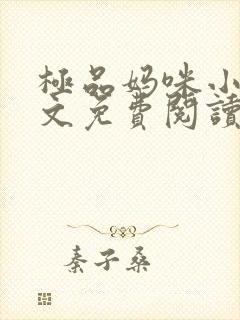 極品妈咪小
文免費閱讀
秦子桑